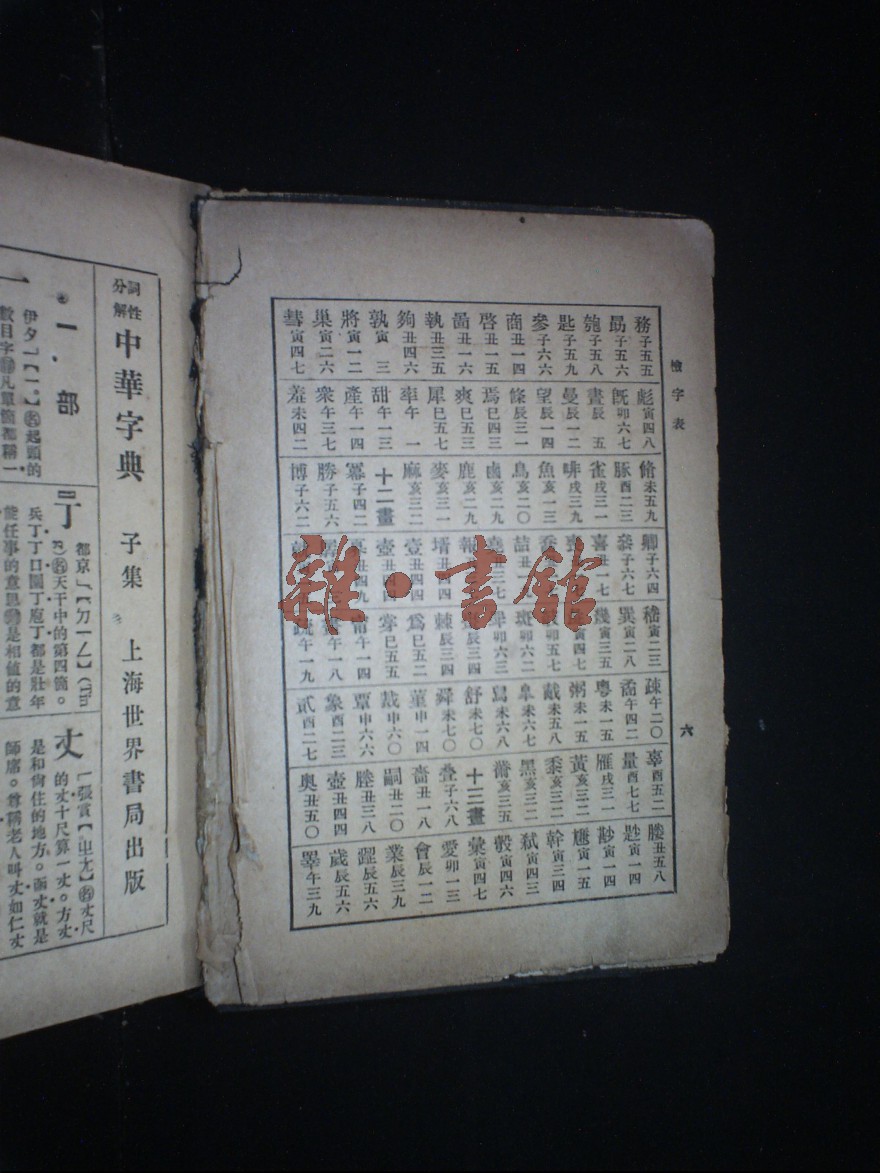 檢字表
六
務子五五 勗子五六 匏子五八 匙子五九 參子六六 商丑一四 啓丑一五 啚丑一六 執丑三五 夠丑四六 孰寅三 將寅一二 巢寅二六 彗寅四七
彪寅四八 旣卯六七 晝辰五 曼辰一二 望辰一四 條辰三一 焉巳四三 爽巳五三 犀巳五七 率午一 甜午一三 產午一四 衆午三七 羞未四二
脩未五九 豚酉二三 雀戌三一 戌三九 魚亥一三 鳥亥二〇 鹵亥二九 鹿亥二九 麥亥三一 麻亥三二 十二畫 冪子四二 勝子五六 博子六二
卿子六四 子六七 喜丑一七 喆丑 報丑 壻丑四四 壹丑四四 壺丑四
嵇寅二三 巽寅二八 幾寅三五 寅四七 卯五七 斑卯六二 卯六三 辰三四 棘辰三四 爲巳五二 巳五五 甯午一四 午一八 疏午一九
疎午二〇 矞午四二 粤未一五 粥未一五 未五八 臯未六七 舃未六八 舒未七〇 舜未七〇 菫申一四 裁申六〇 覃申六六 象酉二三 貳酉二七
辜酉五二 量酉七七 雁戌三一 黃亥三二 黍亥三二 黑亥三二 黹亥三五 十三畫 子六八 嗇丑一八 嗣丑二〇 塍丑三八 壺丑四四 奧丑五〇
媵丑五八 尟寅一四 尠寅一四 尲寅一五 幹寅三四 弑寅四三 彀寅四六 彙寅四七 愛卯一三 會辰一二 業辰三九 辰五六 歲辰五六 睪午三九
詞性分解
中華字典 子集 上海世界書局出版
一部
一
伊夕「【一】名起頭的
數目字凡單箇都稱一
丁
都京「【ㄉㄧㄥ】(Tin
名天干中的第四箇。
兵丁丁口園丁庖丁都是壯年
能任事的意思是相値的意
丈
【張賞【ㄓㄤ】名丈尺
的丈十尺算一丈。方丈
是和尙住的地方。函丈就是
師席。尊稱老人叫丈如仁丈
雜·書館